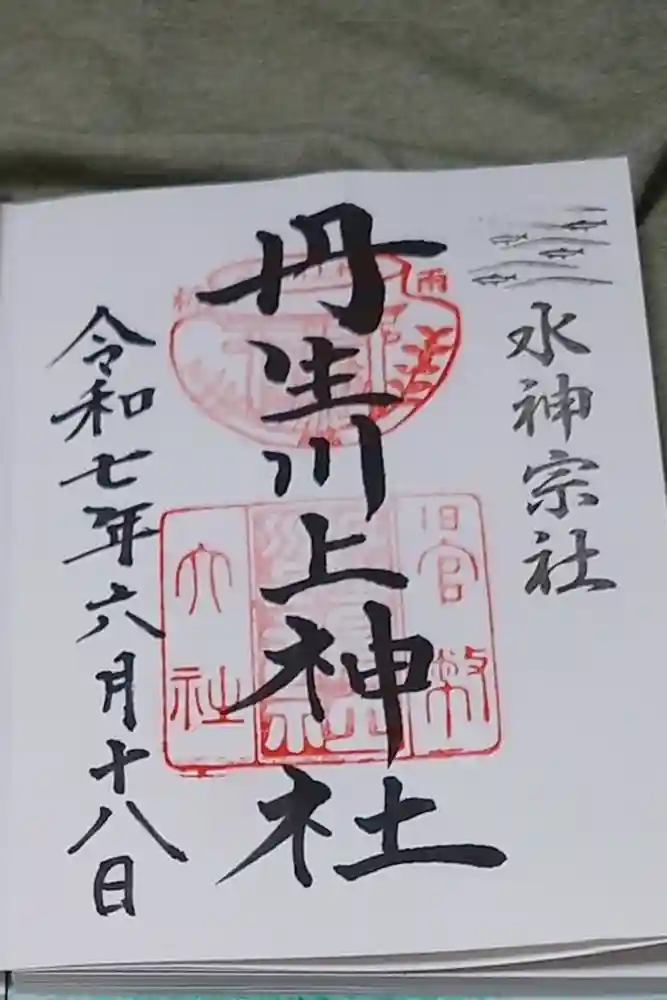 水神宗社
丹生川上神社
令和七年六月十八日
雨
旧官幣
大社